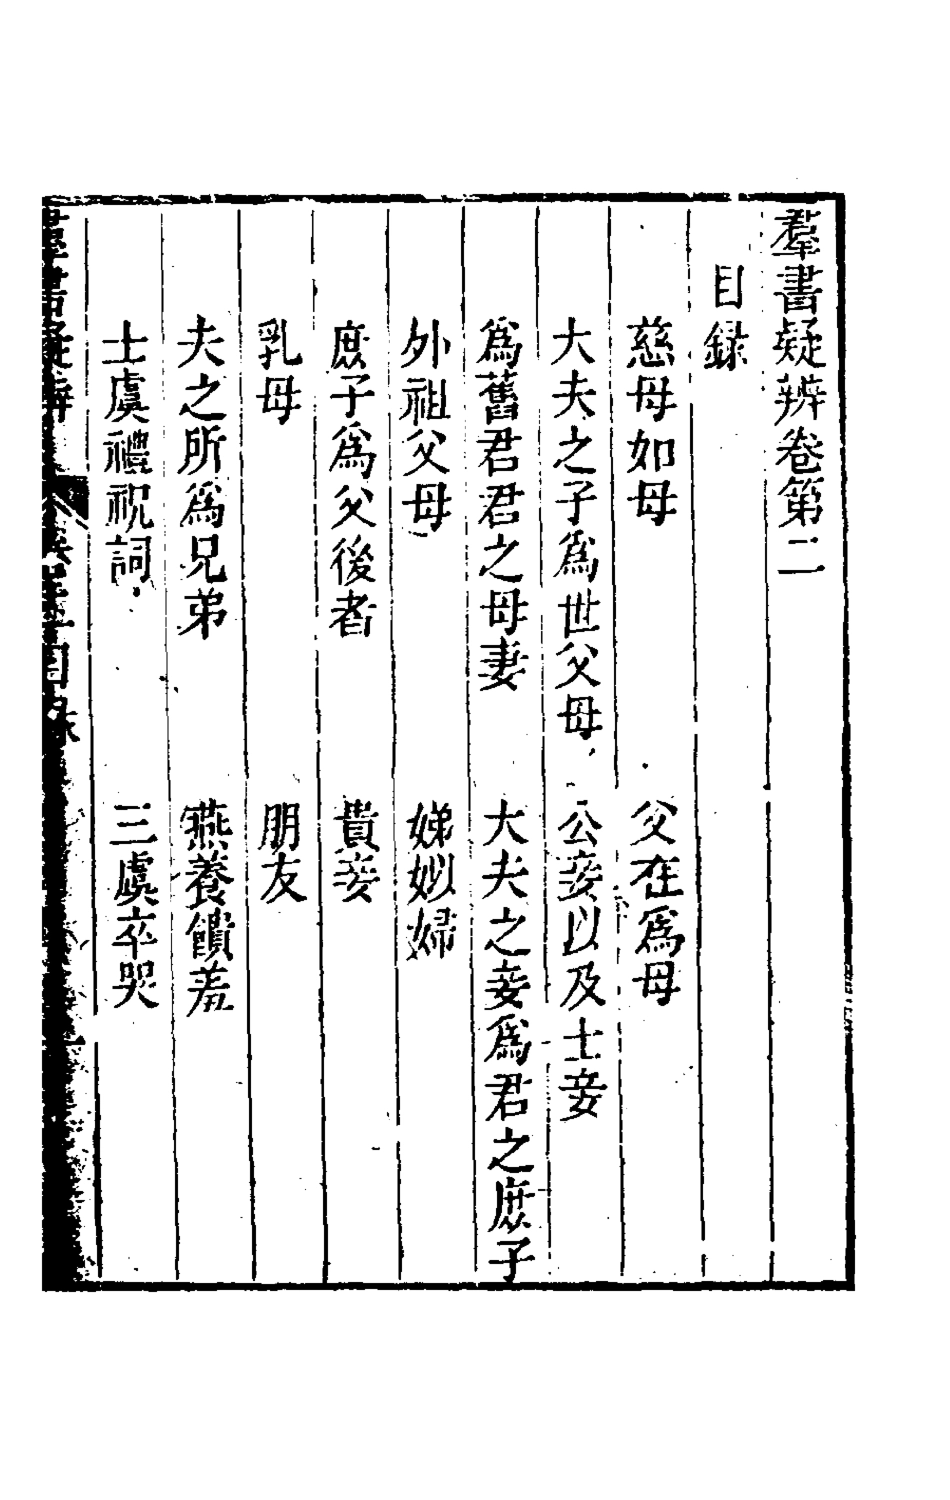 羣書疑辨卷第二
目録
慈母如母　父在爲母
大夫之子爲世父母　公妾以及士妾
爲舊君君之母妻　大夫之妾爲君之庶子
外祖父母　娣姒婦
庶子爲父後者　貴妾
乳母　朋友
夫之所爲兄弟　燕養饋羞
士虞禮祝詞　三虞卒哭